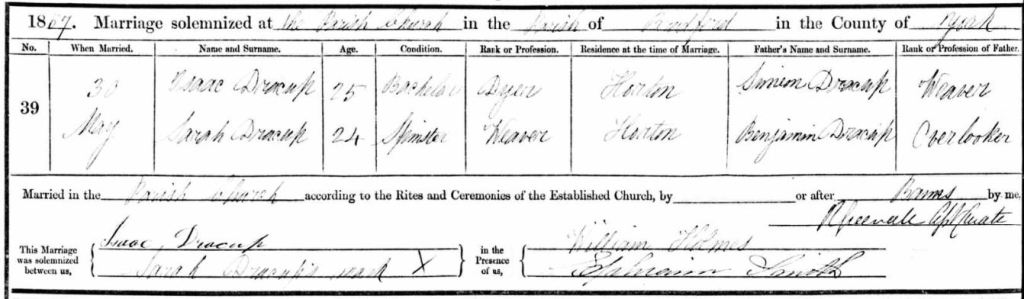 1867. Marriage solemnized at the Parish Church in the Parish of Bradford in the County of York
No. When Married. Name and Surname. Age. Condition. Rank or Profession. Residence at the time of Marriage. Father's Name and Surname. Rank or Profession of Father.
39 30 Isaac Dracup 25 Bachelor Dyer Horton Simeon Dracup Weaver
May Sarah Dracup 24 Spinster Weaver Horton Benjamin Dracup Overlooker
Married in the Parish Church according to the Rites and Ceremonies of the Established Church, by or after Banns by me,
Curate
This Marriage was solemnized between us, Isaac Dracup in the Presence of us, William Holmes
Sarah Dracup's mark X Ephraim Smith